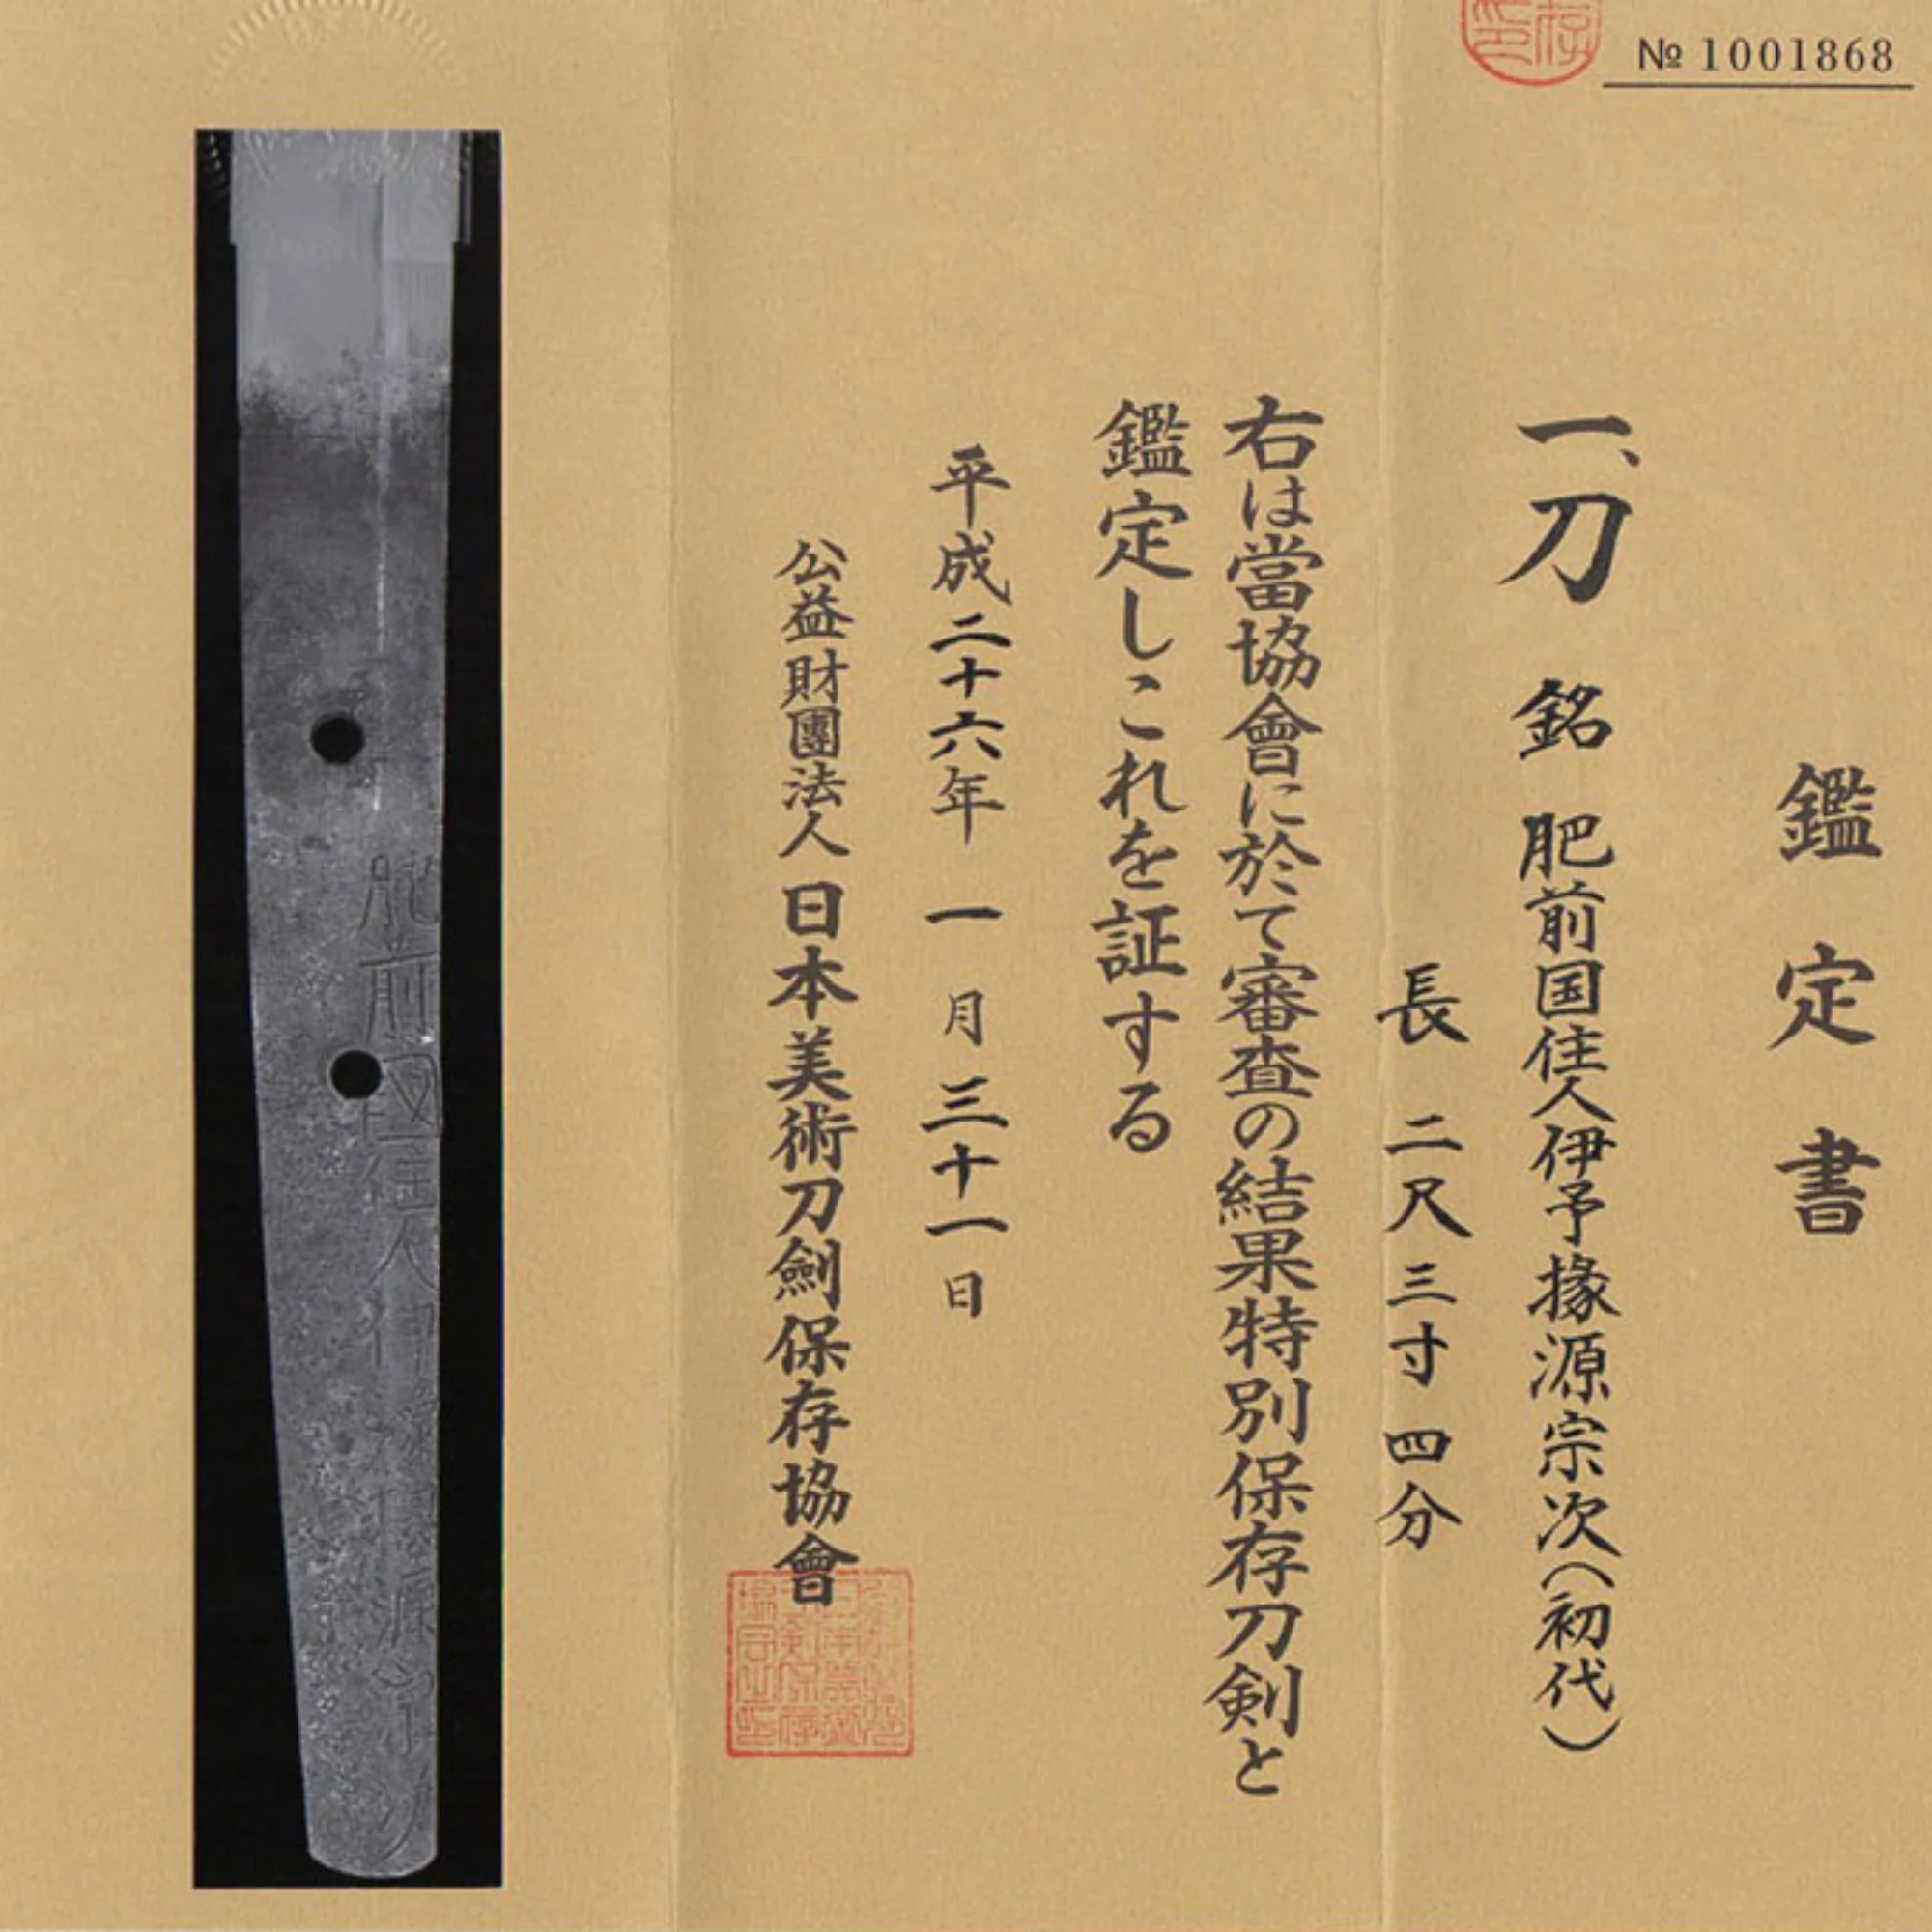 № 1001868
鑑定書
一、刀 銘 肥前国住人伊予掾源宗次(初代)
長 二尺三寸四分
右は當協會に於て審査の結果特別保存刀剣と
鑑定しこれを証する
平成二十六年 一月三十一日
公益財團法人 日本美術刀劍保存協會
肥前國住人伊予掾源宗次